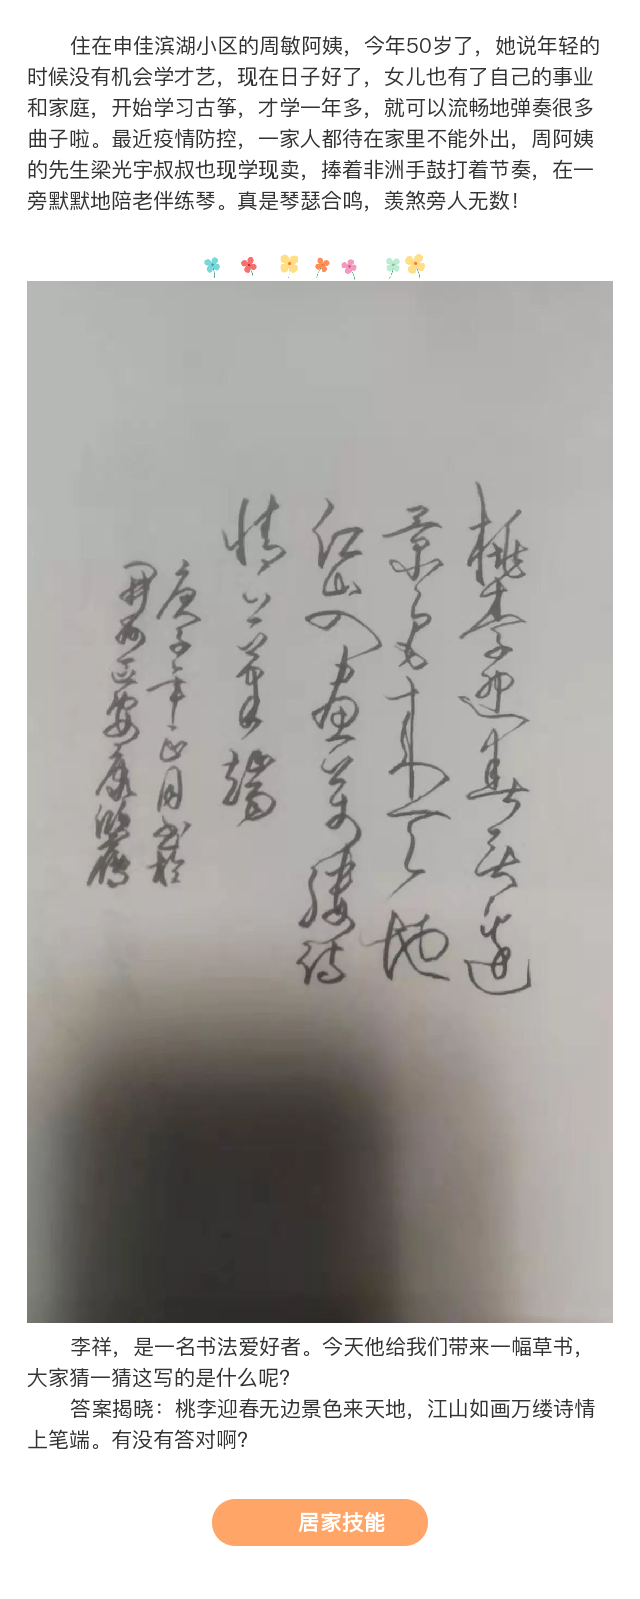 住在申佳滨湖小区的周敏阿姨，今年50岁了，她说年轻的
时候没有机会学才艺，现在日子好了，女儿也有了自己的事业
和家庭，开始学习古筝，才学一年多，就可以流畅地弹奏很多
曲子啦。最近疫情防控，一家人都待在家里不能外出，周阿姨
的先生梁光宇叔叔也现学现卖，捧着非洲手鼓打着节奏，在一
旁默默地陪老伴练琴。真是琴瑟合鸣，羡煞旁人无数！
桃李迎春无边
景色来天地
江山如画万缕诗
情上笔端
庚子年正月书於
李祥，是一名书法爱好者。今天他给我们带来一幅草书，
大家猜一猜这写的是什么呢？
答案揭晓：桃李迎春无边景色来天地，江山如画万缕诗情
上笔端。有没有答对啊？
居家技能